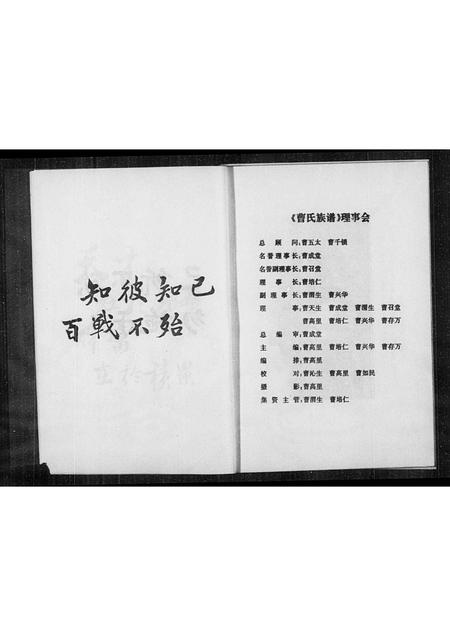 知彼知己
百戰不殆
《曹氏族谱》理事会
总顾问：曹五太 曹千镇
名誉理事长：曹成堂
名誉副理事长：曹召堂
理事长：曹培仁
副理事长：曹渭生 曹兴华
理事：曹天生 曹成堂 曹渭生 曹召堂
曹高里 曹培仁 曹兴华 曹存万
总编审：曹成堂
主编：曹高里 曹培仁 曹兴华 曹存万
编排：曹高里
校对：曹沁生 曹高里 曹如民
摄影：曹高里
集资主管：曹渭生 曹培仁